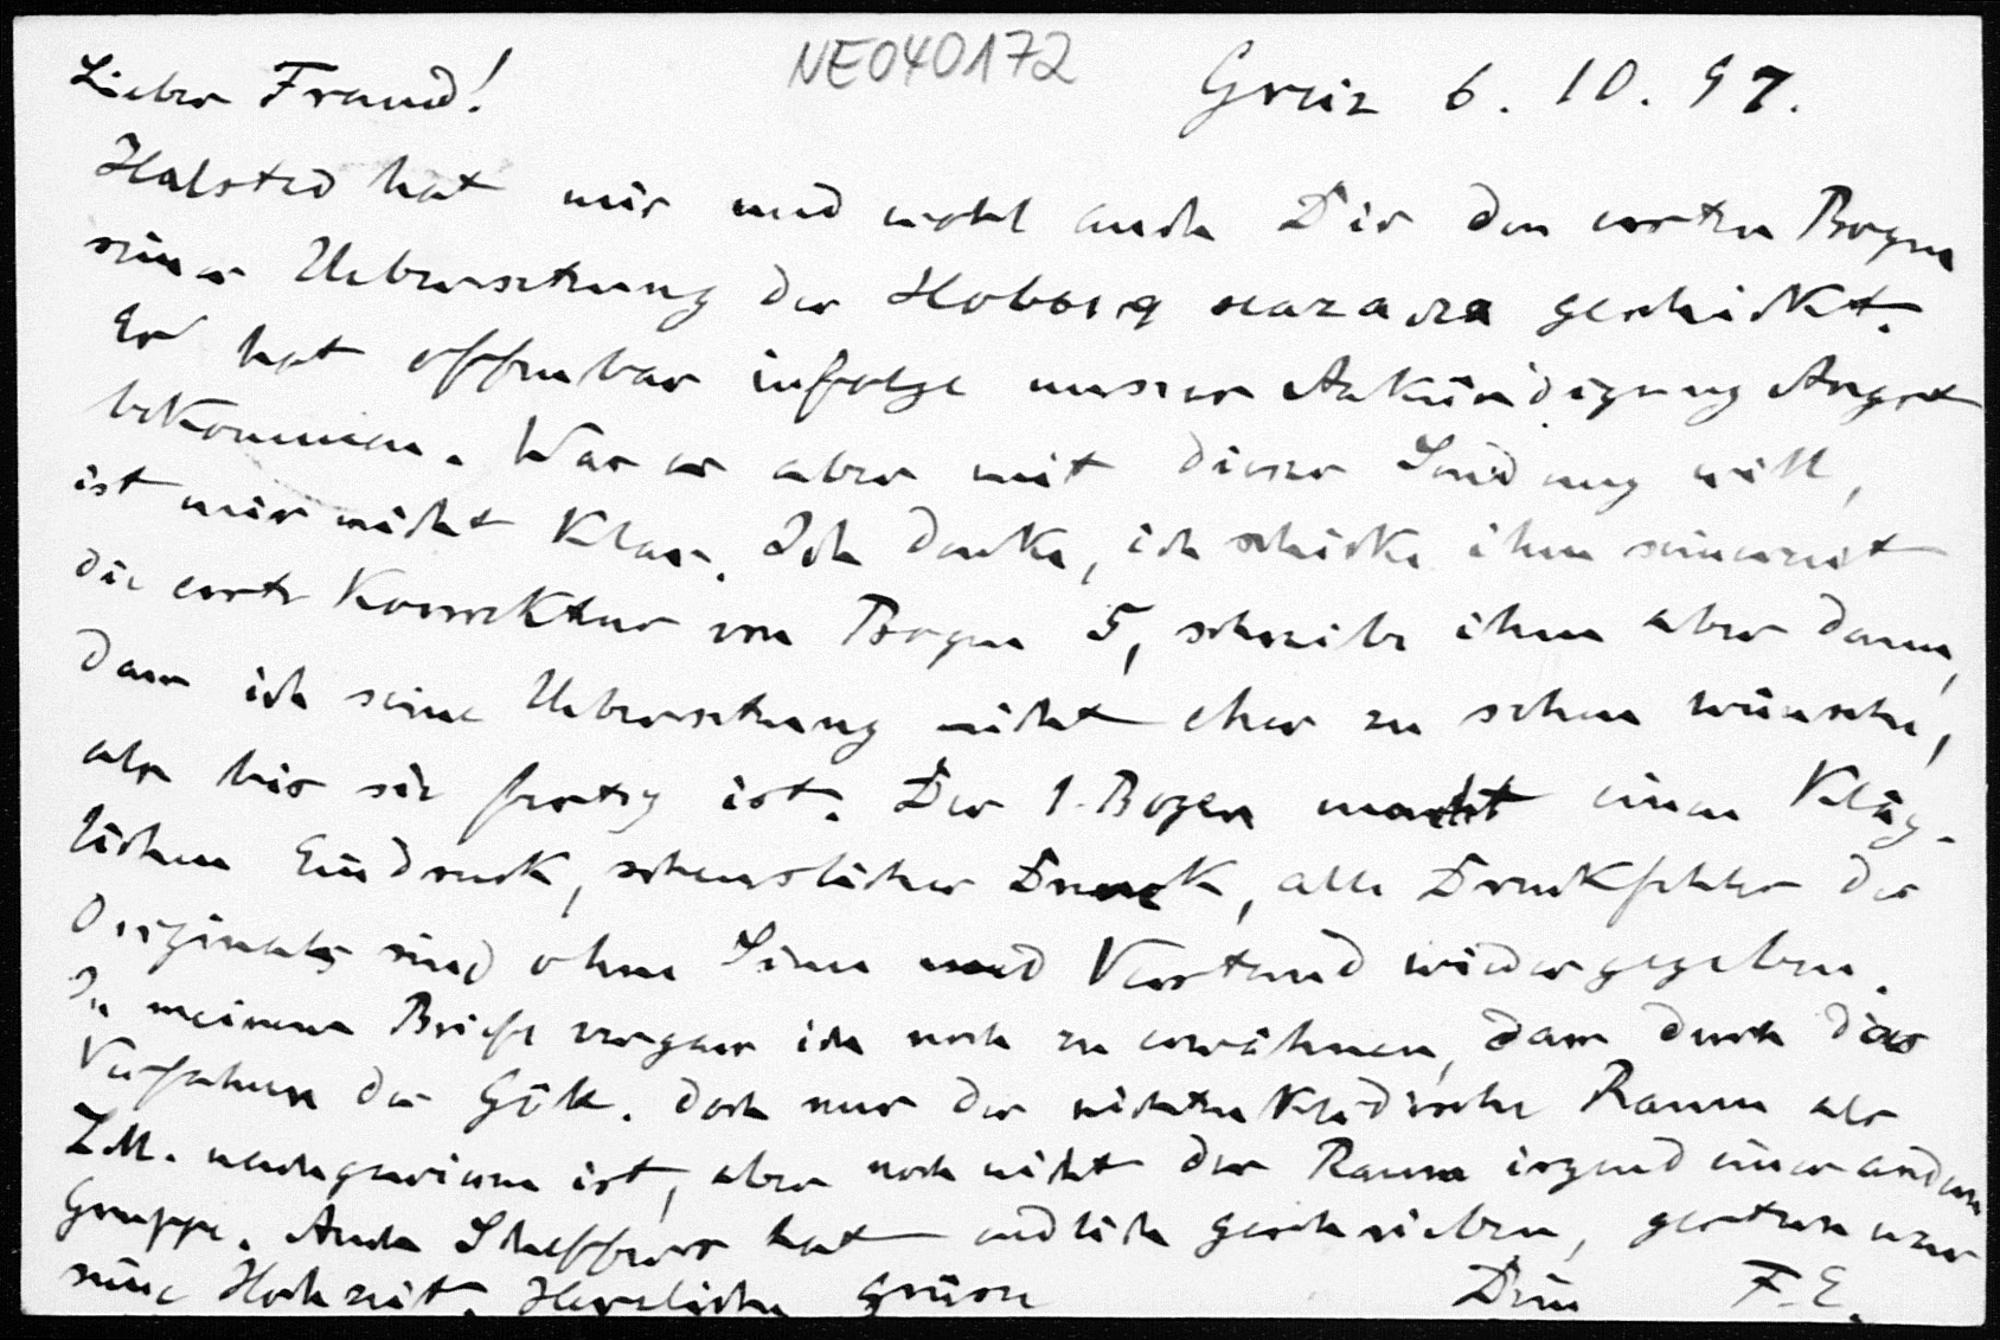 NE040172
Lieber Freund! Greiz 6. 10. 97.
Halsted hat mir und wohl auch Dir den ersten Bogen
seiner Uebersetzung der геометрія geschickt.
Er hat offenbar infolge unserer Ankündigung Angst
bekommen. Was er aber mit dieser Sendung will,
ist mir nicht klar. Ich denke, ich schicke ihm seinerzeit
die erste Korrektur von Bogen 5, schreibe ihm aber dann,
dass ich seine Uebersetzung nicht eher zu sehen wünsche,
als bis sie fertig ist. Der 1. Bogen macht einen kläg-
lichen Eindruck, scheusslicher Druck, alle Druckfehler des
Originals sind ohne Sinn und Verstand wiedergegeben.
In meinem Briefe vergass ich noch zu erwähnen, dass durch das
Verfahren der Gött. doch nur der nichteuklidische Raum als
Z.M. nachgewiesen ist, aber noch nicht der Raum irgend einer andern
Gruppe. Auch Scheffers hat endlich geschrieben, gestern war
seine Hochzeit. Herzliche Grüsse Dein F.E.